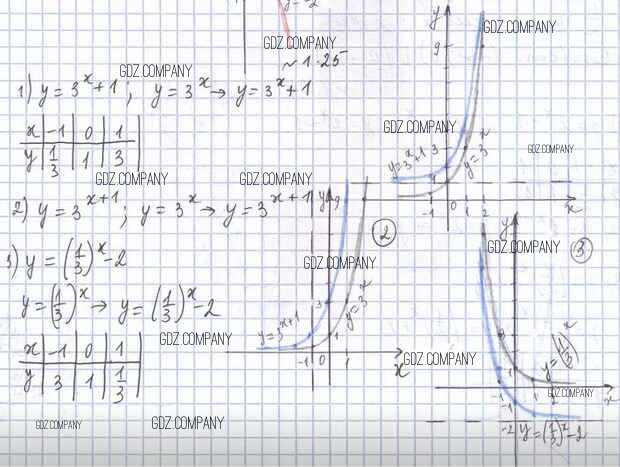 ~ 1·25
1) y = 3^x + 1 ; y = 3^x → y = 3^x + 1
x | -1 | 0 | 1
y | 1/3 | 1 | 3
2) y = 3^(x+1) ; y = 3^x → y = 3^(x+1)
3) y = (1/3)^x - 2
y = (1/3)^x → y = (1/3)^x - 2
x | -1 | 0 | 1
y | 3 | 1 | 1/3
y
9
3
y = 3^x + 1
y = 3^x
-1 0 1 2 x
y 9
②
3
1
y = 3^(x+1)
y = 3^x
-1 0 1 x
y
③
1
y = (1/3)^x
-1 1 2 x
-1
-2
y = (1/3)^x - 2
GDZ.COMPANY
GDZ.COMPANY
GDZ.COMPANY
GDZ.COMPANY
GDZ.COMPANY
GDZ.COMPANY
GDZ.COMPANY
GDZ.COMPANY
GDZ.COMPANY
GDZ.COMPANY
GDZ.COMPANY
GDZ.COMPANY
GDZ.COMPANY
GDZ.COMPANY